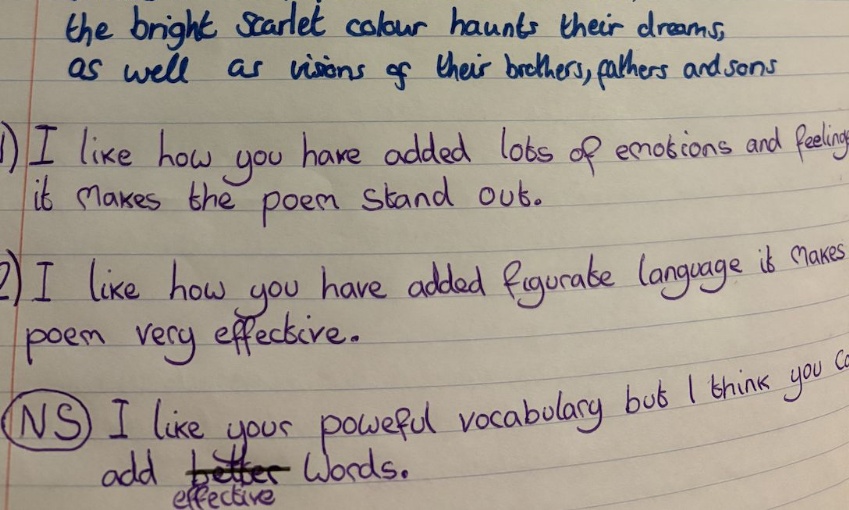 the bright scarlet colour haunts their dreams,
as well as visions of their brothers, fathers and sons
1) I like how you have added lots of emotions and feeling
it makes the poem stand out.
2) I like how you have added figurate language it makes
poem very effective.
NS I like your poweful vocabulary but I think you co
add better words.
effective